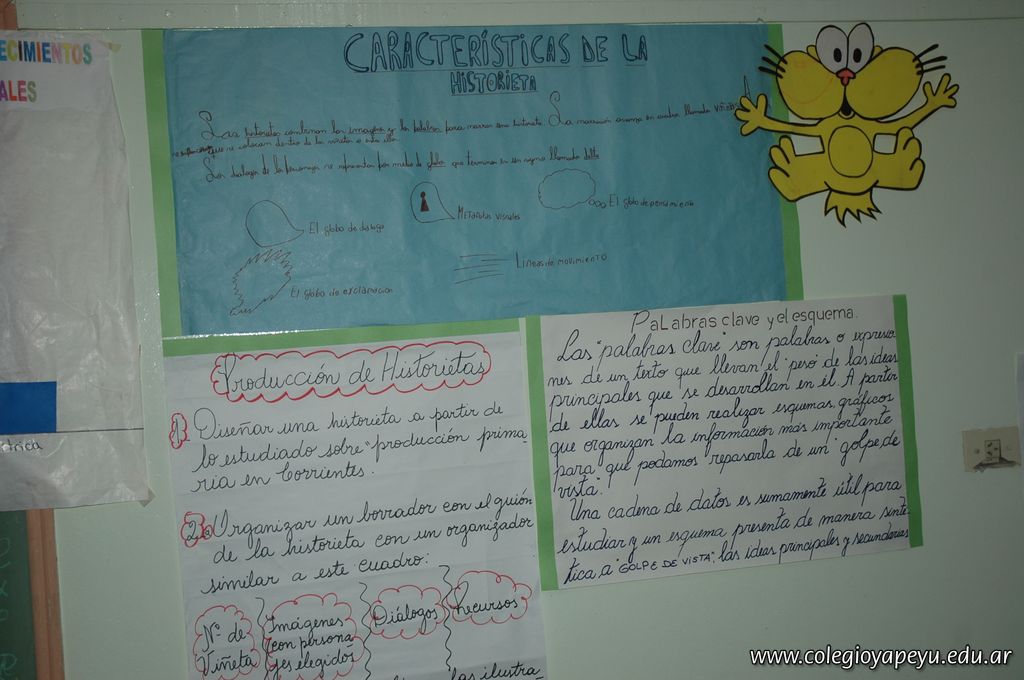 ECIMIENTOS
ALES
CARACTERÍSTICAS DE LA
HISTORIETA
Las historietas combinan las imagenes y las palabras para narrar una historieta. La narración avanza en cuadros llamada viñeta
que se colocan dentro de la viñeta o entre ellas.
Los dialogos de los personajes se representan por medio de globo que terminan en un signo llamado delta
El globo de dialogo
Metaforas visuales
El globo de pensamiento
El globo de exclamacion
Lineas de movimiento
Producción de Historietas
1) Diseñar una historieta a partir de
lo estudiado sobre "producción prima
ria en Corrientes.
2) Organizar un borrador con el guión
de la historieta con un organizador
similar a este cuadro:
Nº de
Viñeta
Imágenes
con persona
jes elegidos
Diálogos
Recursos
las ilustra
Palabras clave y el esquema.
Las "palabras clave" son palabras o expresio
nes de un texto que llevan el "peso" de las ideas
principales que se desarrollan en él. A partir
de ellas se pueden realizar esquemas gráficos
que organizan la información más importante
para que podamos "repasarla de un "golpe de
vista".
Una cadena de datos es sumamente útil para
estudiar y un esquema presenta de manera sinté
tica, a "GOLPE DE VISTA", las ideas principales y secundarias
drica
www.colegioyapeyu.edu.ar